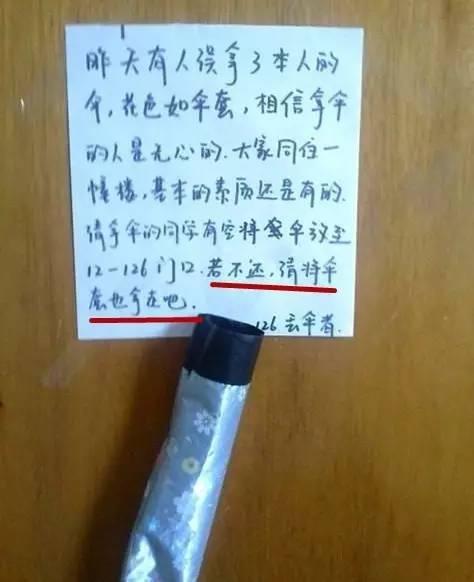 昨天有人误拿了本人的
伞,花色如伞套,相信拿伞
的人是无心的.大家同住一
幢楼,基本的素质还是有的.
请拿伞的同学有空将伞放至
12-126门口.若不还,请将伞
套也拿走吧.
126 丢伞者.